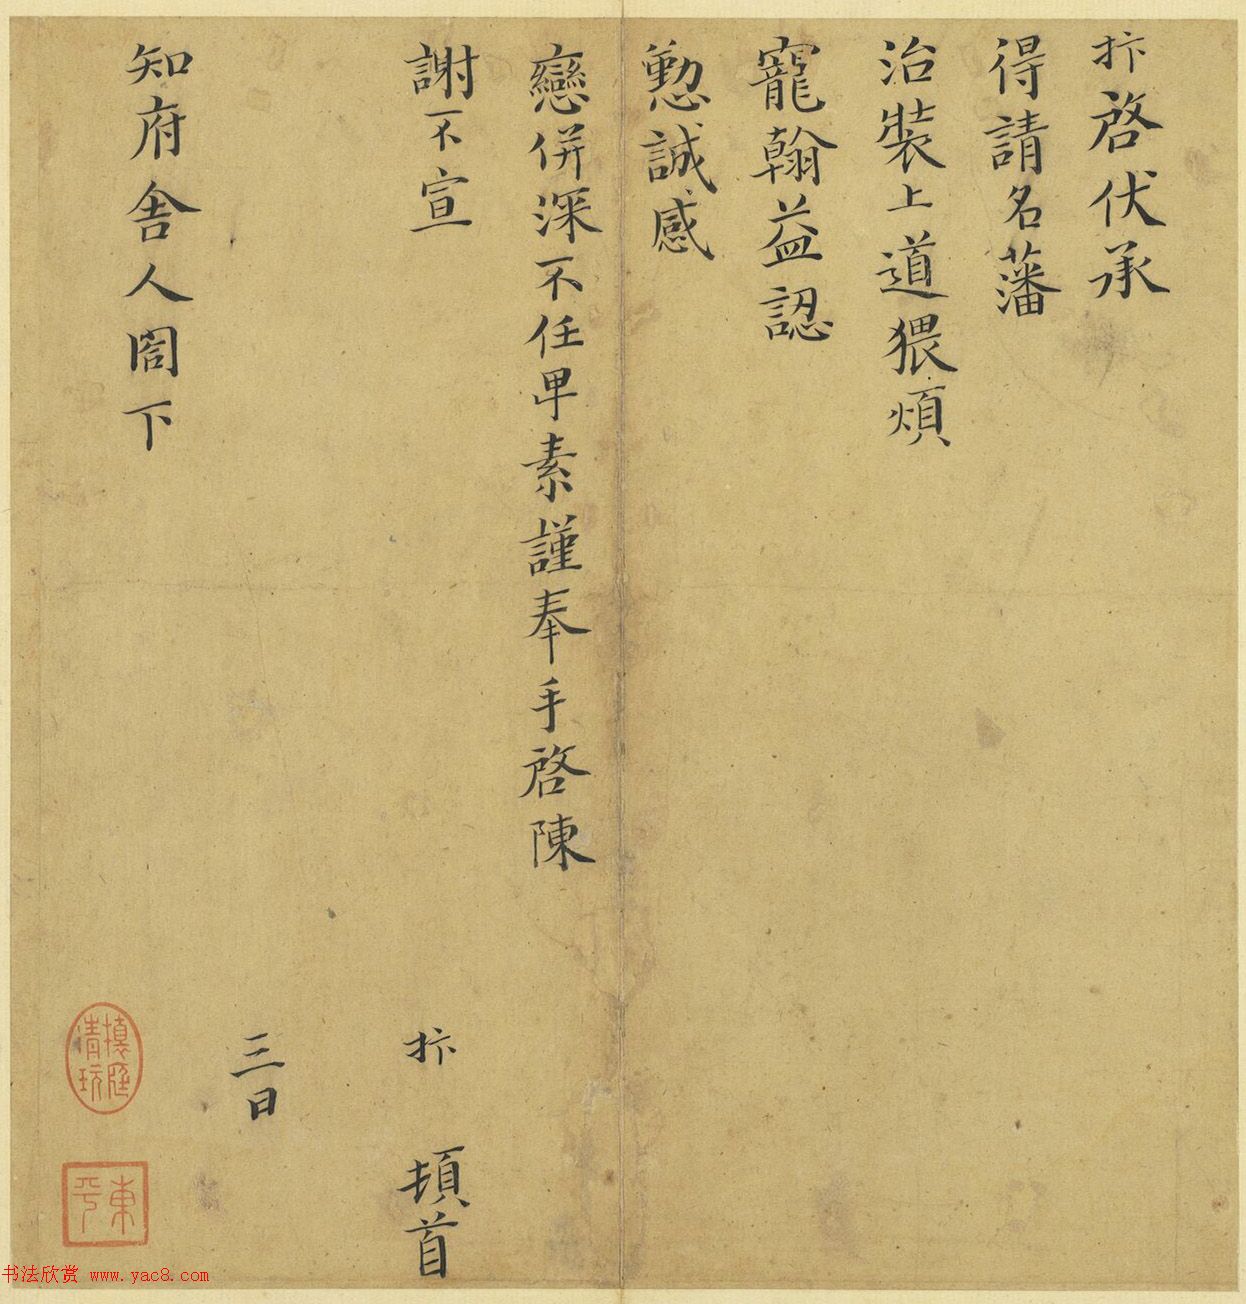 抃啓伏承
得請名藩
治裝上道猥煩
寵翰益認
懃誠感
戀併深不任卑素謹奉手啓陳
謝不宣
抃 頓首
三日
知府舍人閤下
清玩
東平
书法欣赏 www.yac8.com